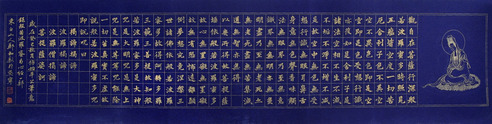 觀自在菩薩行深般
若波羅蜜多時照見
五蘊皆空度一切苦
厄舍利子色不異空
空不異色色即是空
空即是色受想行識
亦復如是舍利子是
諸法空相不生不滅
不垢不淨不增不減
是故空中無色無受
想行識無眼耳鼻舌
身意無色聲香味觸
法無眼界乃至無意
識界無無明亦無無
明盡乃至無老死亦
無老死盡無苦集滅
道無智亦無得
以無所得故菩提薩
埵依般若波羅蜜多
故心無罣礙無罣礙
故無有恐怖遠離顛
倒夢想究竟涅槃三
世諸佛依般若波羅
蜜多故得阿耨多羅
三藐三菩提故知般
若波羅蜜多是大神
咒是大明咒是無上
咒是無等等咒能除
一切苦真實不虛故
說般若波羅蜜多咒
即說咒曰
揭諦揭諦
波羅揭諦
波羅僧揭諦
菩提薩婆訶